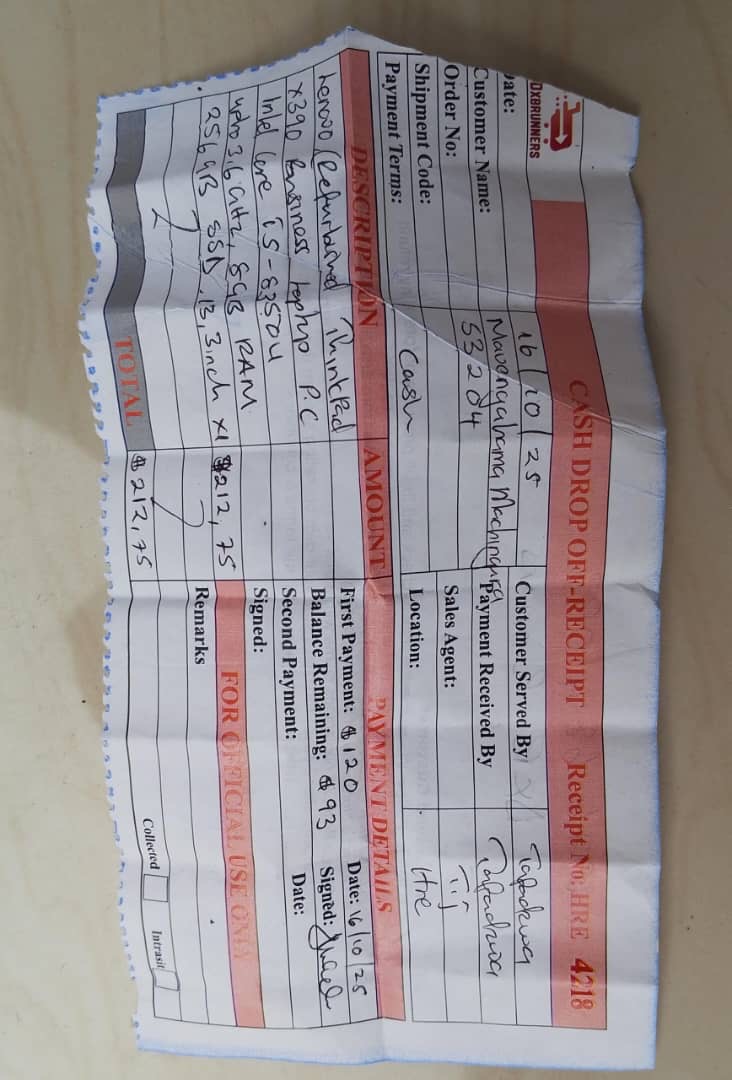 DXBRUNNERS
CASH DROP OFF-RECEIPT Receipt No: HRE 4218
Date: 16/10/25 Customer Served By Tafadzwa
Customer Name: Mavengahama Machingura Payment Received By Tafadzwa
Order No: 53204 Sales Agent: Tij
Shipment Code: Location: Hre
Payment Terms: Cash
DESCRIPTION AMOUNT PAYMENT DETAILS
Lenovo (Refurbished) ThinkPad First Payment: $120 Date: 16/10/25
X390 Business Laptop P.C Balance Remaining: $93 Signed:
Intel Core i5-8350U Second Payment: Date:
upto 3,6 GHz, 8GB RAM Signed:
256GB SSD, 13,3inch x1 $212,75 FOR OFFICIAL USE ONLY
Remarks
TOTAL $212,75
Collected Intrasit